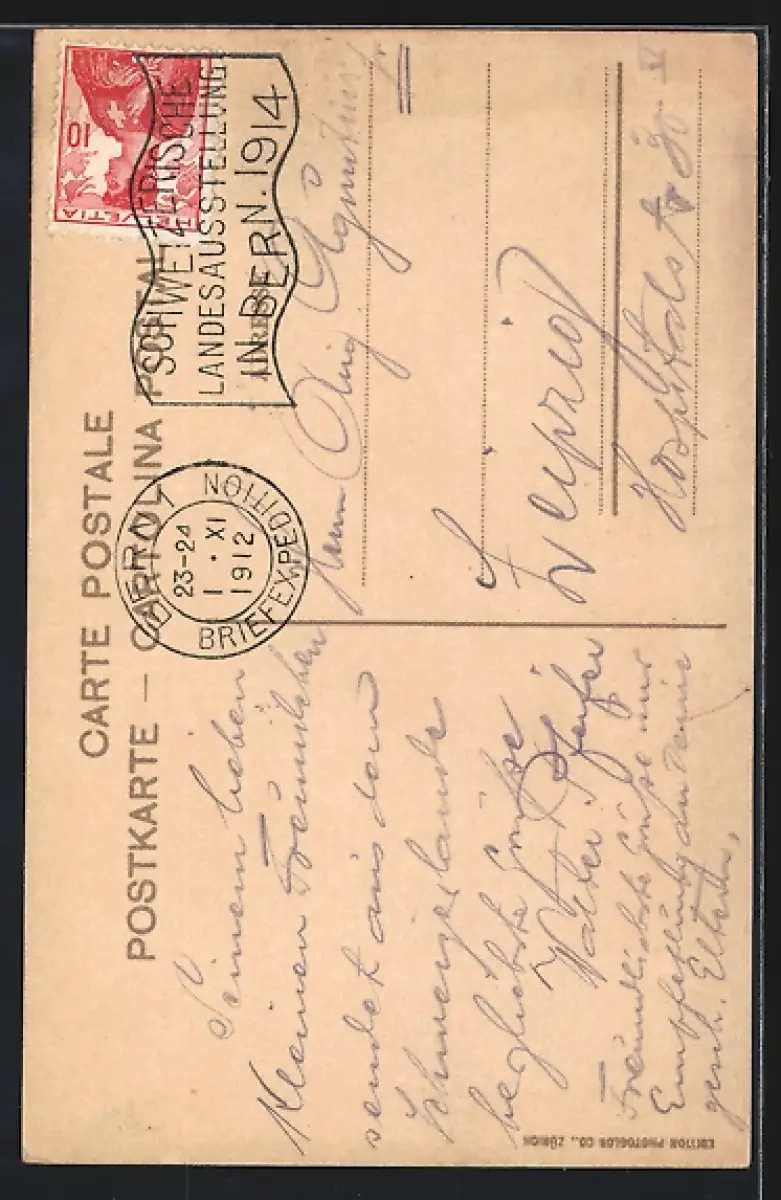 CARTE POSTALE
POSTKARTE — CARTOLINA POSTALE
HELVETIA
10
SCHWEIZERISCHE
LANDESAUSSTELLUNG
IN BERN. 1914
BERN 1
23-24
1 · XI
1912
BRIEFEXPEDITION
Seinem lieben
kleinen Freundchen
sendet aus dem
Schweizerlande
herzlichste Grüße
Walter Pfeifer
Freundlichste Grüße und
Empfehlung an Deine
gesch. Eltern.
Herrn Aug.
Leipzig
Hospitalstr.
EDITION PHOTOGLOB CO., ZÜRICH